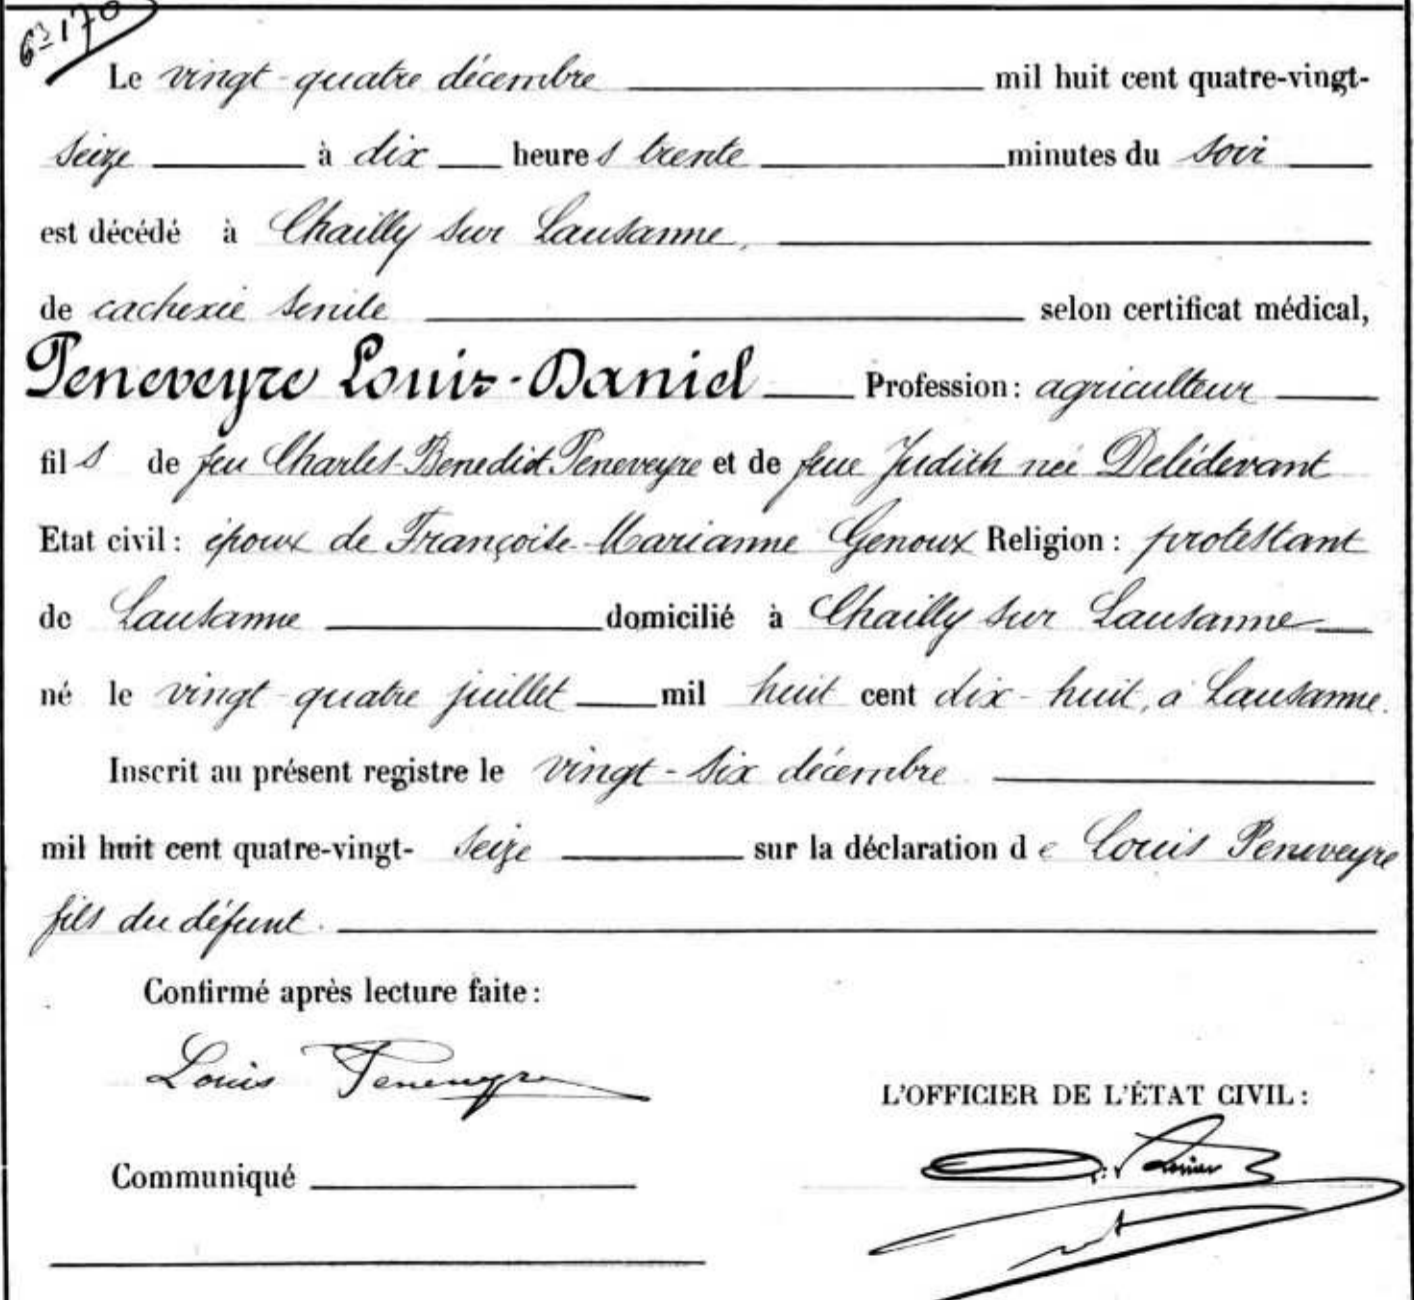 Le vingt-quatre décembre mil huit cent quatre-vingt-
seize à dix heures trente minutes du soir
est décédé à Chailly sur Lausanne,
de cachexie senile selon certificat médical,
Peneveyre Louis-Daniel Profession: agriculteur
fils de feu Charles-Benedict Peneveyre et de feue Judith née Delédevant
Etat civil: époux de Françoise-Marianne Genoux Religion: protestant
de Lausanne domicilié à Chailly sur Lausanne
né le vingt-quatre juillet mil huit cent dix-huit, à Lausanne.
Inscrit au présent registre le vingt-six décembre
mil huit cent quatre-vingt-seize sur la déclaration de Louis Peneveyre
fils du défunt.
Confirmé après lecture faite:
Louis Peneveyre
L'OFFICIER DE L'ÉTAT CIVIL:
Communiqué